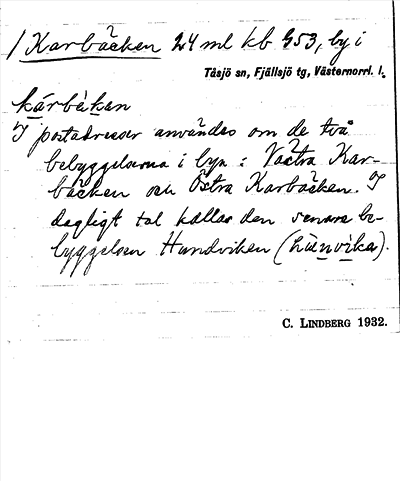 / Karbäcken 24 ml kb G53, by i
Tåsjö sn, Fjällsjö tg, Västernorrl. l.
kárbèkan
I postadresser användes om de två
bebyggelserna i byn: Västra Kar-
bäcken och Östra Karbäcken. I
dagligt tal kallas den senare be-
byggelsen Hundviken (hùnvika).
C. LINDBERG 1932.